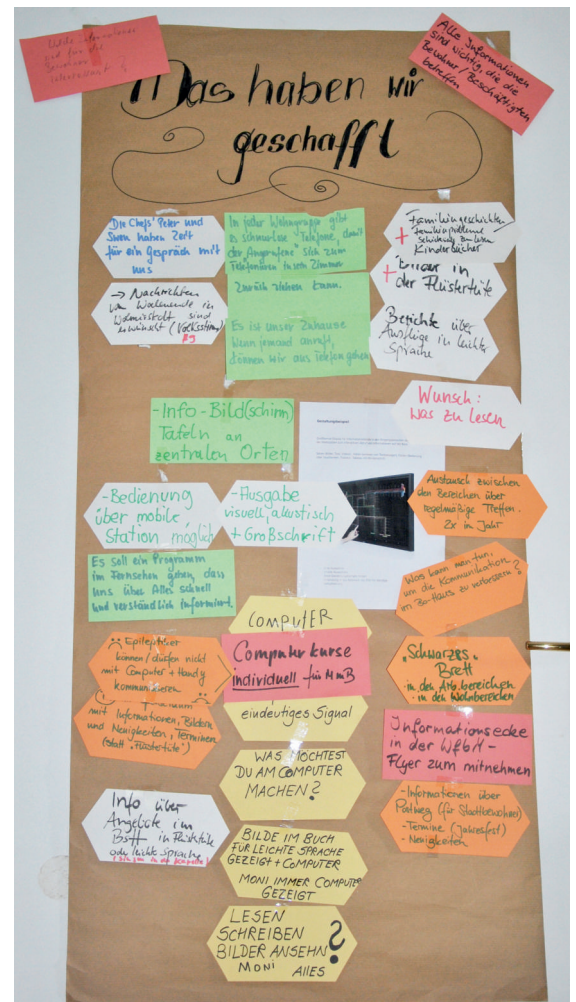 Alle Informationen
sind wichtig, die die
Bewohner / Beschäftigten
betreffen
Das haben wir
geschafft
Die Chefs' Peter und
haben Zeit
für ein Gespräch mit
uns
→ Nachrichten
vom Wochenende in
Wolmirstedt sind
erwünscht (Volksstimme)
In jeder Wohngruppe gibt
es schnurlose Telefone, damit
der Angerufene sich zum
Telefonieren in sein Zimmer
zurück ziehen kann.
Es ist unser Zuhause
Wenn jemand anruft,
können wir ans Telefon gehen
Familiengeschichten
+ Familienprobleme
Kinderbücher
+ Bilder in
der Flüstertüte
Berichte über
Ausflüge in leichter
Sprache
Wunsch:
was zu lesen
-Info-Bild(schirm)
Tafeln an
zentralen Orten
-Bedienung
über mobile
Station möglich
-Ausgabe
visuell, akustisch
+ Großschrift
Austausch zwischen
den Bereichen über
regelmäßige Treffen.
2x im Jahr
Es soll ein Programm
im Fernsehen geben, dass
uns über Alles schnell
und verständlich informiert.
Was kann man tun,
um die Kommunikation
im Bo-Haus zu verbessern?
COMPUTER
Epileptiker
können/dürfen nicht
mit Computer + Handy
kommunizieren
Computerkurse
individuell für MmB
"Schwarzes"
Brett
· in den Arb.bereichen
· in den Wohnbereichen
mit Informationen, Bildern
und Neuigkeiten, Terminen
(statt "Flüstertüte")
eindeutiges Signal
Informationsecke
in der WfbM -
Flyer zum mitnehmen
WAS MÖCHTEST
DU AM COMPUTER
MACHEN?
Info über
Angebote im
in Flüstertüte
oder leichte Sprache
-Informationen über
(für Stadtbewohner)
-Termine (Jahresfest)
-Neuigkeiten
BILDE IM BUCH
FÜR LEICHTE SPRACHE
GEZEIGT + COMPUTER
MONI IMMER COMPUTER
GEZEIGT
LESEN
SCHREIBEN
BILDER ANSEHN?
MONI ALLES